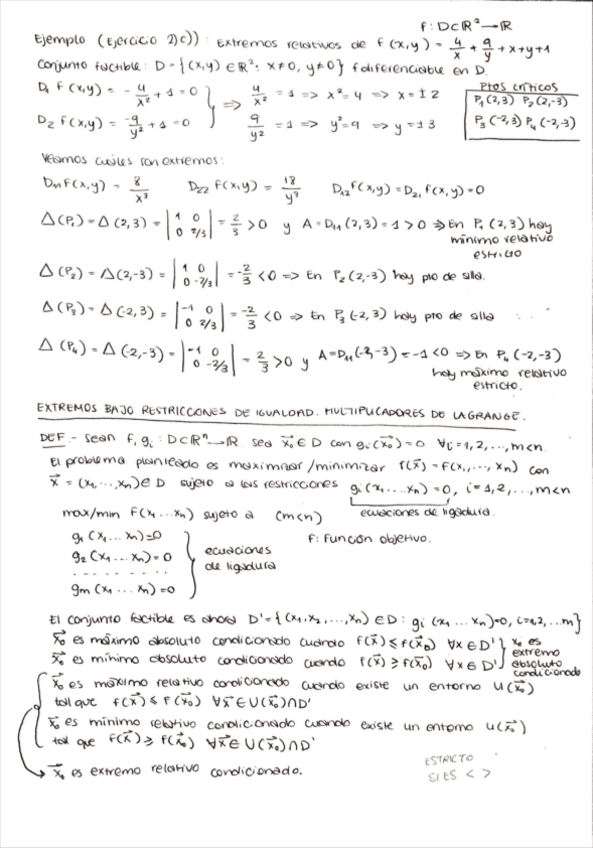 f: D⊂ℝ² → ℝ
Ejemplo (Ejercicio 2)c)): Extremos relativos de f(x,y) = 4/x + 9/y + x+y+1
Conjunto factible: D = {(x,y) ∈ ℝ²: x≠0, y≠0} f diferenciable en D.
D₁ f(x,y) = -4/x² + 1 = 0 } ⇒ 4/x² = 1 ⇒ x² = 4 ⇒ x = ±2
D₂ f(x,y) = -9/y² + 1 = 0 } 9/y² = 1 ⇒ y² = 9 ⇒ y = ±3
Ptos críticos
P₁(2,3) P₂(2,-3)
P₃(-2,3) P₄(-2,-3)
Veamos cuáles son extremos:
D₁₁f(x,y) = 8/x³ D₂₂ f(x,y) = 18/y³ D₁₂f(x,y) = D₂₁ f(x,y) = 0
Δ(P₁) = Δ(2,3) = |1 0; 0 2/3| = 2/3 > 0 y A = D₁₁(2,3) = 1 > 0 ⇒ En P₁(2,3) hay
mínimo relativo
estricto
Δ(P₂) = Δ(2,-3) = |1 0; 0 -2/3| = -2/3 < 0 ⇒ En P₂(2,-3) hay pto de silla.
Δ(P₃) = Δ(-2,3) = |-1 0; 0 2/3| = -2/3 < 0 ⇒ En P₃(-2,3) hay pto de silla
Δ(P₄) = Δ(-2,-3) = |-1 0; 0 -2/3| = 2/3 > 0 y A = D₁₁(-2,-3) = -1 < 0 ⇒ En P₄(-2,-3)
hay máximo relativo
estricto.
EXTREMOS BAJO RESTRICCIONES DE IGUALDAD. MULTIPLICADORES DE LAGRANGE.
DEF.- Sean f, gᵢ: D⊂ℝⁿ → ℝ sea x⃗₀ ∈ D con gᵢ(x⃗₀) = 0 ∀i = 1,2,...,m<n.
El problema planteado es maximizar/minimizar f(x⃗) = f(x₁,...,xₙ) con
x⃗ = (x₁,...,xₙ) ∈ D sujeto a las restricciones gᵢ(x₁...xₙ) = 0, i = 1,2,...,m<n
ecuaciones de ligadura.
max/min f(x₁...xₙ) sujeto a (m<n)
f: Función objetivo.
g₁(x₁...xₙ) = 0
g₂(x₁...xₙ) = 0 } ecuaciones
. . . . . . . . de ligadura
gm(x₁...xₙ) = 0
El conjunto factible es ahora D' = {(x₁,x₂,...,xₙ) ∈ D: gᵢ(x₁...xₙ) = 0, i=1,2,...m}
x⃗₀ es máximo absoluto condicionado cuando f(x⃗) ≤ f(x⃗₀) ∀x ∈ D' } x₀ es
x⃗₀ es mínimo absoluto condicionado cuando f(x⃗) ≥ f(x⃗₀) ∀x ∈ D' } extremo
absoluto
condicionado
x⃗₀ es máximo relativo condicionado cuando existe un entorno U(x⃗₀)
tal que f(x⃗) ≤ f(x⃗₀) ∀x⃗ ∈ U(x⃗₀)∩D'
x⃗₀ es mínimo relativo condicionado cuando existe un entorno U(x⃗₀)
tal que f(x⃗) ≥ f(x⃗₀) ∀x⃗ ∈ U(x⃗₀)∩D'
→ x⃗₀ es extremo relativo condicionado.
ESTRICTO
SI ES < >